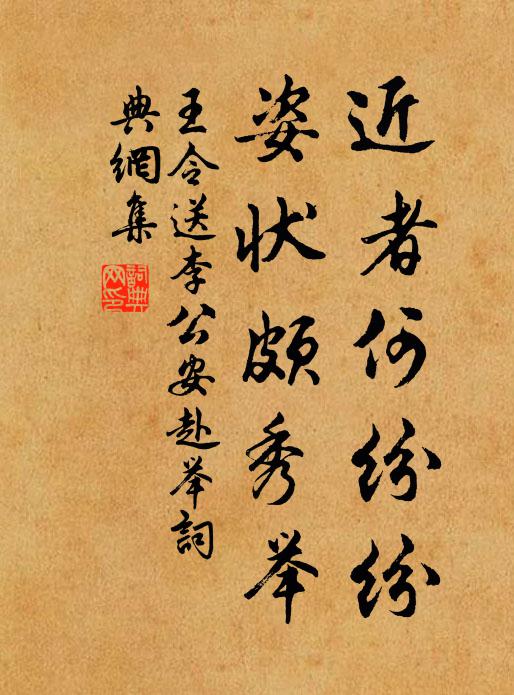 近者何纷纷
姿状颇秀举
王令送李公安赴举詞
典網集
詞典网印